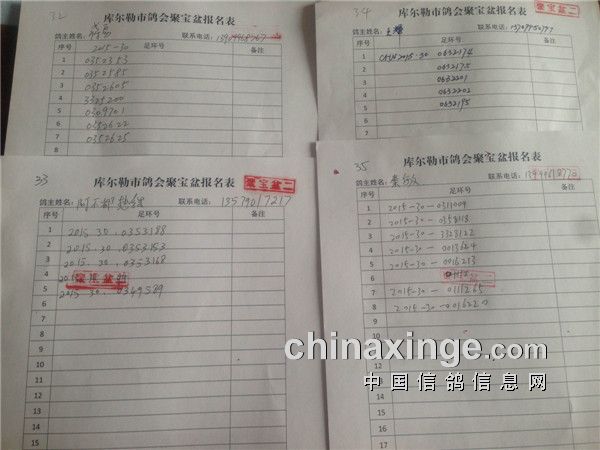 32
库尔勒市鸽会聚宝盆报名表
鸽主姓名: 联系电话:
序号 足环号 备注
2015-30
1 0352353
2 0352585
3 0352605
4 3325200
5 0309701
6 0352622
7 0352625
8
34
聚宝盆二
库尔勒市鸽会聚宝盆报名表
鸽主姓名: 联系电话:
序号 足环号 备注
1 CHN2015-30 0632174
2 0632175
3 0632201
4 0632202
5 0632195
6
7
33
库尔勒市鸽会聚宝盆报名表
聚宝盆二
鸽主姓名: 联系电话: 13579017217
序号 足环号 备注
1 2015.30.0353188
2 2015.30.0353153
3 2015.30.0353168
4
聚宝盆
5 2015.30.0349589
6
7
8
9
10
11
12
13
14
15
35
库尔勒市鸽会聚宝盆报名表
聚宝盆二
鸽主姓名: 联系电话:
序号 足环号 备注
1 2015-30-0311009
2 2015-30-0358118
3 2015-30-3323122
4 2015-30-0013624
5 2015-30-0016213
6
7 2015-30-0111265
8 2015-30-0016220
9
10
11
12
13
14
15
16
17
chinaxinge.com
中国信鸽信息网